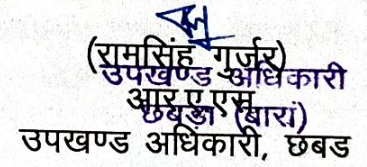 (रामसिंह गुर्जर)
उपखण्ड अधिकारी
आर.ए.एस.
छबड़ा (बारां)
उपखण्ड अधिकारी, छबड